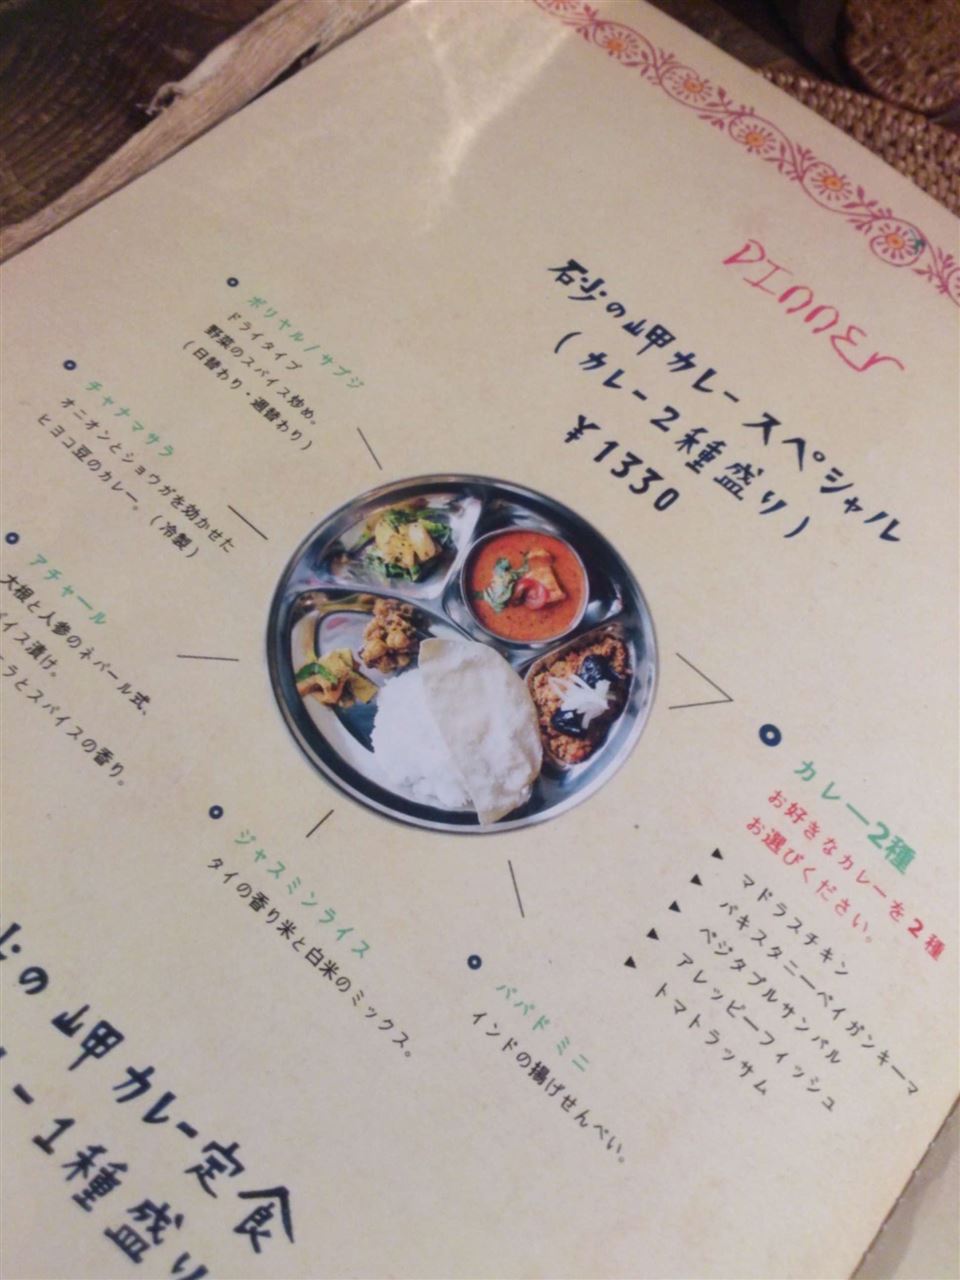 DINNER
砂の岬カレースペシャル
(カレー2種盛り)
¥1330
ポリヤル/サブジ
ドライタイプ
野菜のスパイス炒め。
(日替わり・週替わり)
チャナマサラ
オニオンとショウガを効かせた
ヒヨコ豆のカレー。(冷製)
アチャール
大根と人参のネパール式、
パイス漬け。
ニラとスパイスの香り。
カレー2種
お好きなカレーを2種
お選びください。
▶ マドラスチキン
▶ パキスタニーベイガンキーマ
▶ ベジタブルサンバル
▶ アレッピーフィッシュ
▶ トマトラッサム
ジャスミンライス
タイの香り米と白米のミックス。
パパド ミニ
インドの揚げせんべい。
の岬カレー定食
ー1種盛り